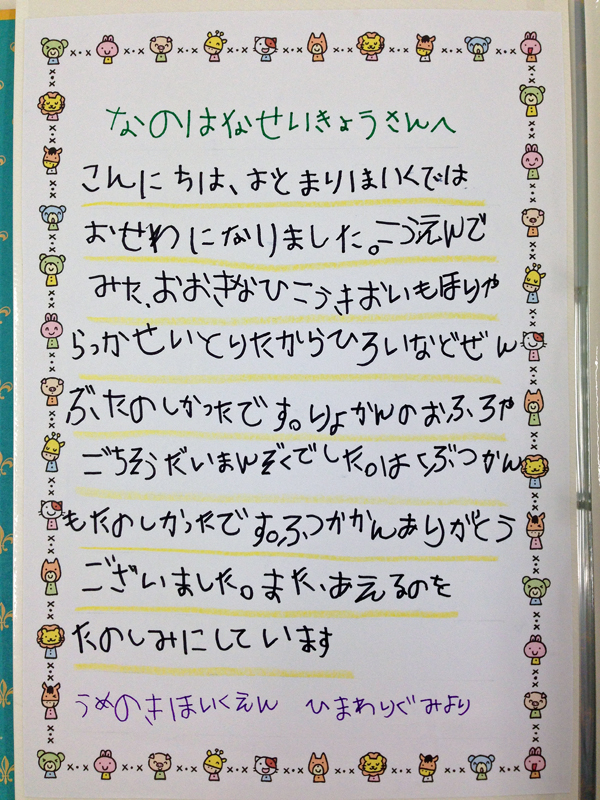 なのはなせいきょうさんへ
こんにちは、おとまりほいくでは
おせわになりました。こうえんで
みた、おおきなひこうきおいもほりや
らっかせいとりたからひろいなどぜん
ぶたのしかったです。りょかんのおふろや
ごちそうだいまんぞくでした。はくぶつかん
もたのしかったです。ふつかかんありがとう
ございました。また、あえるのを
たのしみにしています
うめのきほいくえん ひまわりぐみより